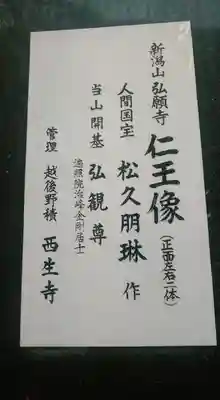 新潟山 弘願寺
仁王像（正面左右二体）
人間国宝 松久朋琳 作
当山開基 弘観尊
遍照院治峰金剛居士
管理 越後野積 西生寺